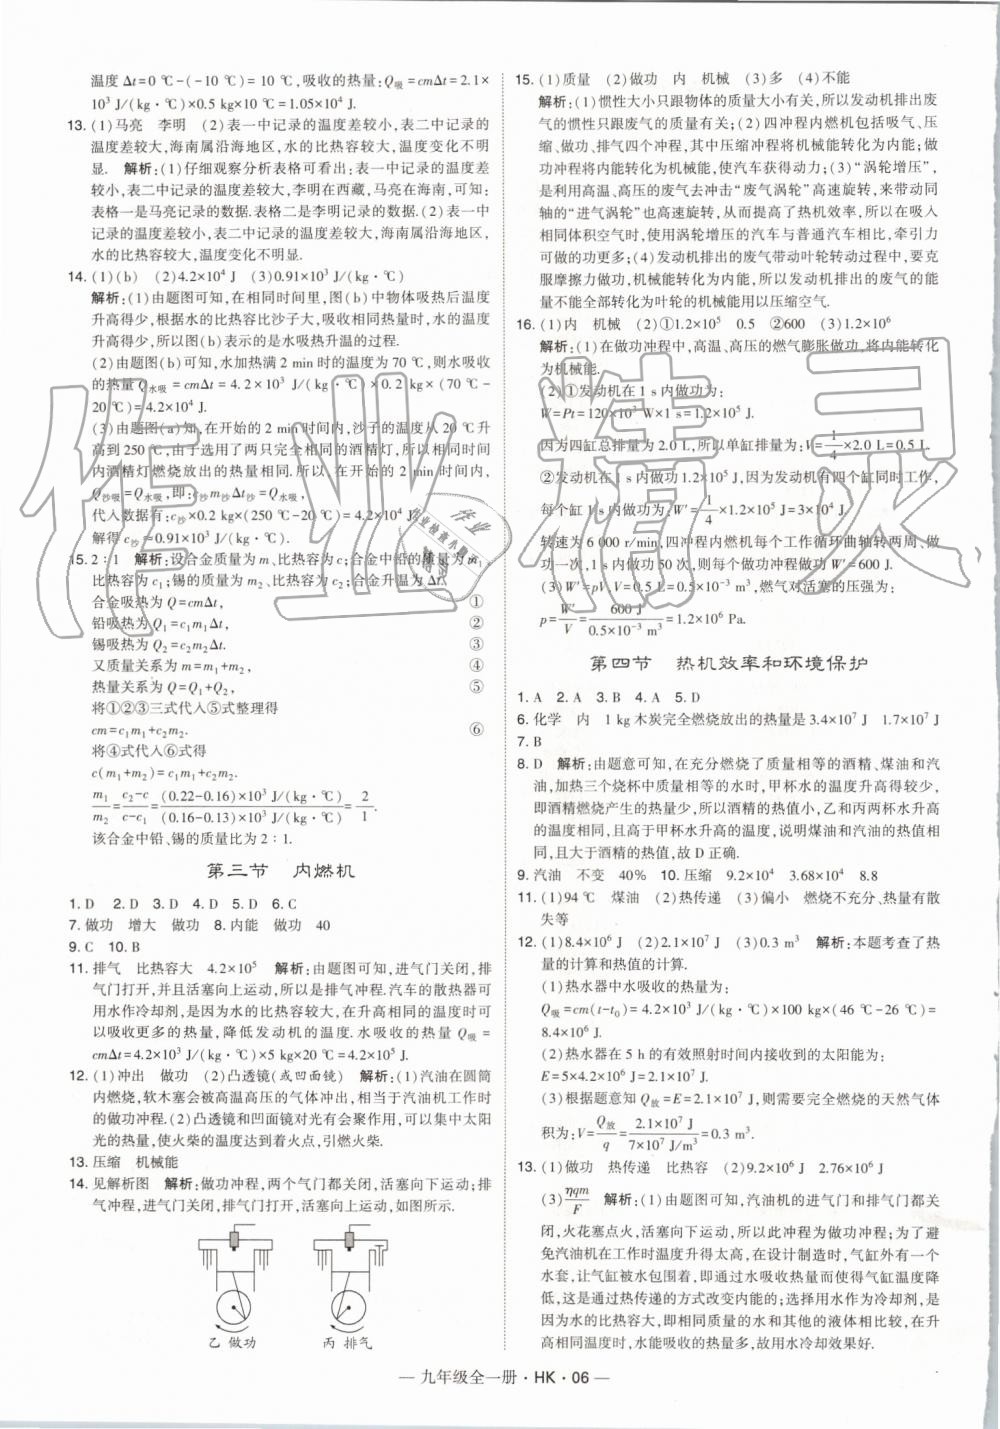 温度Δt=0 ℃-(-10 ℃)=10 ℃,吸收的热量:Q吸=cmΔt=2.1×
10³ J/(kg·℃)×0.5 kg×10 ℃=1.05×10⁴ J.
13. (1)马亮 李明 (2)表一中记录的温度差较小,表二中记录的
温度差较大,海南属沿海地区,水的比热容较大,温度变化不明
显. 解析:(1)仔细观察分析表格可看出:表一中记录的温度差
较小,表二中记录的温度差较大,李明在西藏,马亮在海南,可知:
表格一是马亮记录的数据.表格二是李明记录的数据.(2)表一中
记录的温度差较小,表二中记录的温度差较大,海南属沿海地区,
水的比热容较大,温度变化不明显.
14. (1)(b) (2)4.2×10⁴ J (3)0.91×10³ J/(kg·℃)
解析:(1)由题图可知,在相同时间里,图(b)中物体吸热后温度
升高得少,根据水的比热容比沙子大,吸收相同热量时,水的温度
升高得少,所以图(b)表示的是水吸热升温的过程.
(2)由题图(b)可知,水加热满2 min时的温度为70 ℃,则水吸收
的热量Q水吸=cmΔt=4.2×10³ J/(kg·℃)×0.2 kg×(70 ℃-
20 ℃)=4.2×10⁴ J.
(3)由题图(a)知,在开始的2 min时间内,沙子的温度从20 ℃升
高到250 ℃,由于选用了两只完全相同的酒精灯,在相同的时间
内酒精灯燃烧放出的热量相同.所以,在开始2 min时间内,
Q沙吸=Q水吸,即:c沙m沙Δt沙=Q水吸,
代入数据有:c沙×0.2 kg×(250 ℃-20 ℃)=4.2×10⁴ J.
解得c沙≈0.91×10³ J/(kg·℃)
15. 2∶1 解析:设合金质量为m、比热容为c;合金中铅的质量为m₁、
比热容为c₁;锡的质量为m₂、比热容为c₂;合金升温为Δt.
合金吸热为Q=cmΔt, ①
铅吸热为Q₁=c₁m₁Δt, ②
锡吸热为Q₂=c₂m₂Δt. ③
又质量关系为m=m₁+m₂, ④
热量关系为Q=Q₁+Q₂, ⑤
将①②③三式代入⑤整理得
cm=c₁m₁+c₂m₂. ⑥
将④式代入⑥式得
c(m₁+m₂)=c₁m₁+c₂m₂.
m₁/m₂=(c₂-c)/(c-c₁)=(0.22-0.16)×10³ J/(kg·℃)/(0.16-0.13)×10³ J/(kg·℃)=2/1.
该合金中铅、锡的质量比为2∶1.
第三节 内燃机
1. D 2. D 3. D 4. D 5. D 6. C
7. 做功 增大 做功 8. 内能 做功 40
9. C 10. B
11. 排气 比热容大 4.2×10⁵ 解析:由题图可知,进气门关闭,排
气门打开,并且活塞向上运动,所以是排气冲程.汽车的散热器可
用水作冷却剂,是因为水的比热容较大,在升高相同的温度时可
以吸收更多的热量,降低发动机的温度.水吸收的热量Q吸=
cmΔt=4.2×10³ J/(kg·℃)×5 kg×20 ℃=4.2×10⁵ J.
12. (1)冲出 做功 (2)凸透镜(或凹面镜) 解析:(1)汽油在圆筒
内燃烧,软木塞会被高温高压的气体冲出,相当于汽油机工作时
的做功冲程.(2)凸透镜和凹面镜对光有会聚作用,可以集中太阳
光的热量,使火柴的温度达到着火点,引燃火柴.
13. 压缩 机械能
14. 见解析图 解析:做功冲程,两个气门都关闭,活塞向下运动;排
气冲程,进气门关闭,排气门打开,活塞向上运动,如图所示.
乙 做功 丙 排气
15. (1)质量 (2)做功 内 机械 (3)多 (4)不能
解析:(1)惯性大小只跟物体的质量大小有关,所以发动机排出废
气的惯性只跟废气的质量有关.(2)四冲程内燃机包括吸气、压
缩、做功、排气四个冲程,其中压缩冲程将机械能转化为内能;做
功冲程将内能转化为机械能,使汽车获得动力;(3)“涡轮增压”,
是利用高温、高压的废气去冲击“废气涡轮”高速旋转,来带动同
轴的“进气涡轮”也高速旋转,从而提高了热机效率,所以在吸入
相同体积空气时,使用涡轮增压的汽车与普通汽车相比,牵引力
可做的功更多;(4)发动机排出的废气带动叶轮转动过程中,要克
服摩擦力做功,机械能转化为内能,所以发动机排出的废气的能
量不能全部转化为叶轮的机械能用以压缩空气.
16. (1)内 机械 (2)①1.2×10⁵ 0.5 ②600 (3)1.2×10⁶
解析:(1)在做功冲程中,高温、高压的燃气膨胀做功,将内能转化
为机械能.
(2)①发动机在1 s内做功为:
W=Pt=120×10³ W×1 s=1.2×10⁵ J.
因为四缸总排量为2.0 L,所以单缸排量为:V=1/4×2.0 L=0.5 L.
②发动机在1 s内做功1.2×10⁵ J,因为发动机有四个缸同时工作,
每个缸1 s内做功为:W′=1/4×1.2×10⁵ J=3×10⁴ J
转速为6 000 r/min,四冲程内燃机每个工作循环曲轴转两周、做
功一次,1 s内做功50次,则每个做功冲程做功W′=600 J.
(3)W′=pV,V=0.5 L=0.5×10⁻³ m³,燃气对活塞的压强为:
p=W′/V=600 J/0.5×10⁻³ m³=1.2×10⁶ Pa.
第四节 热机效率和环境保护
1. A 2. A 3. B 4. A 5. D
6. 化学 内 1 kg木炭完全燃烧放出的热量是3.4×10⁷ J 1.7×10⁷ J
7. B
8. D 解析:由题意可知,在充分燃烧了质量相等的酒精、煤油和汽
油,加热三个烧杯中质量相等的水时,甲杯水的温度升高得较少,
即酒精燃烧产生的热量少,所以酒精的热值小,乙和丙两杯水升高
的温度相同,且高于甲杯水升高的温度,说明煤油和汽油的热值相
同,且大于酒精的热值,故D正确.
9. 汽油 不变 40% 10. 压缩 9.2×10⁴ 3.68×10⁴ 8.8
11. (1)94 ℃ 煤油 (2)热传递 (3)偏小 燃烧不充分、热量有散
失等
12. (1)8.4×10⁶ J (2)2.1×10⁷ J (3)0.3 m³ 解析:本题考查了热
量的计算和热值的计算.
(1)热水器中水吸收的热量为:
Q吸=cm(t-t₀)=4.2×10³ J/(kg·℃)×100 kg×(46 ℃-26 ℃)=
8.4×10⁶ J.
(2)热水器在5 h的有效照射时间内接收到的太阳能为:
E=5×4.2×10⁶ J=2.1×10⁷ J.
(3)根据题意知Q放=E=2.1×10⁷ J,则需要完全燃烧的天然气体
积为:V=Q放/q=2.1×10⁷ J/7×10⁷ J/m³=0.3 m³.
13. (1)做功 热传递 比热容 (2)9.2×10⁶ 2.76×10⁶
(3)ηqm/F 解析:(1)由题图可知,汽油机的进气门和排气门都关
闭,火花塞点火,活塞向下运动,所以此冲程为做功冲程;为了避
免汽油机在工作时温度升得太高,在设计制造时,气缸外有一个
水套,让气缸被水包围着,即通过水吸收热量而使气缸温度降
低,这是通过热传递的方式改变内能的;选择用水作为冷却剂,是
因为水的比热容大,即相同质量的水和其他的液体相比较,在升
高相同温度时,水能吸收的热量多,故用水冷却效果好.
— 九年级全一册·HK·06 —
作业精灵
作业
作业检查小助手